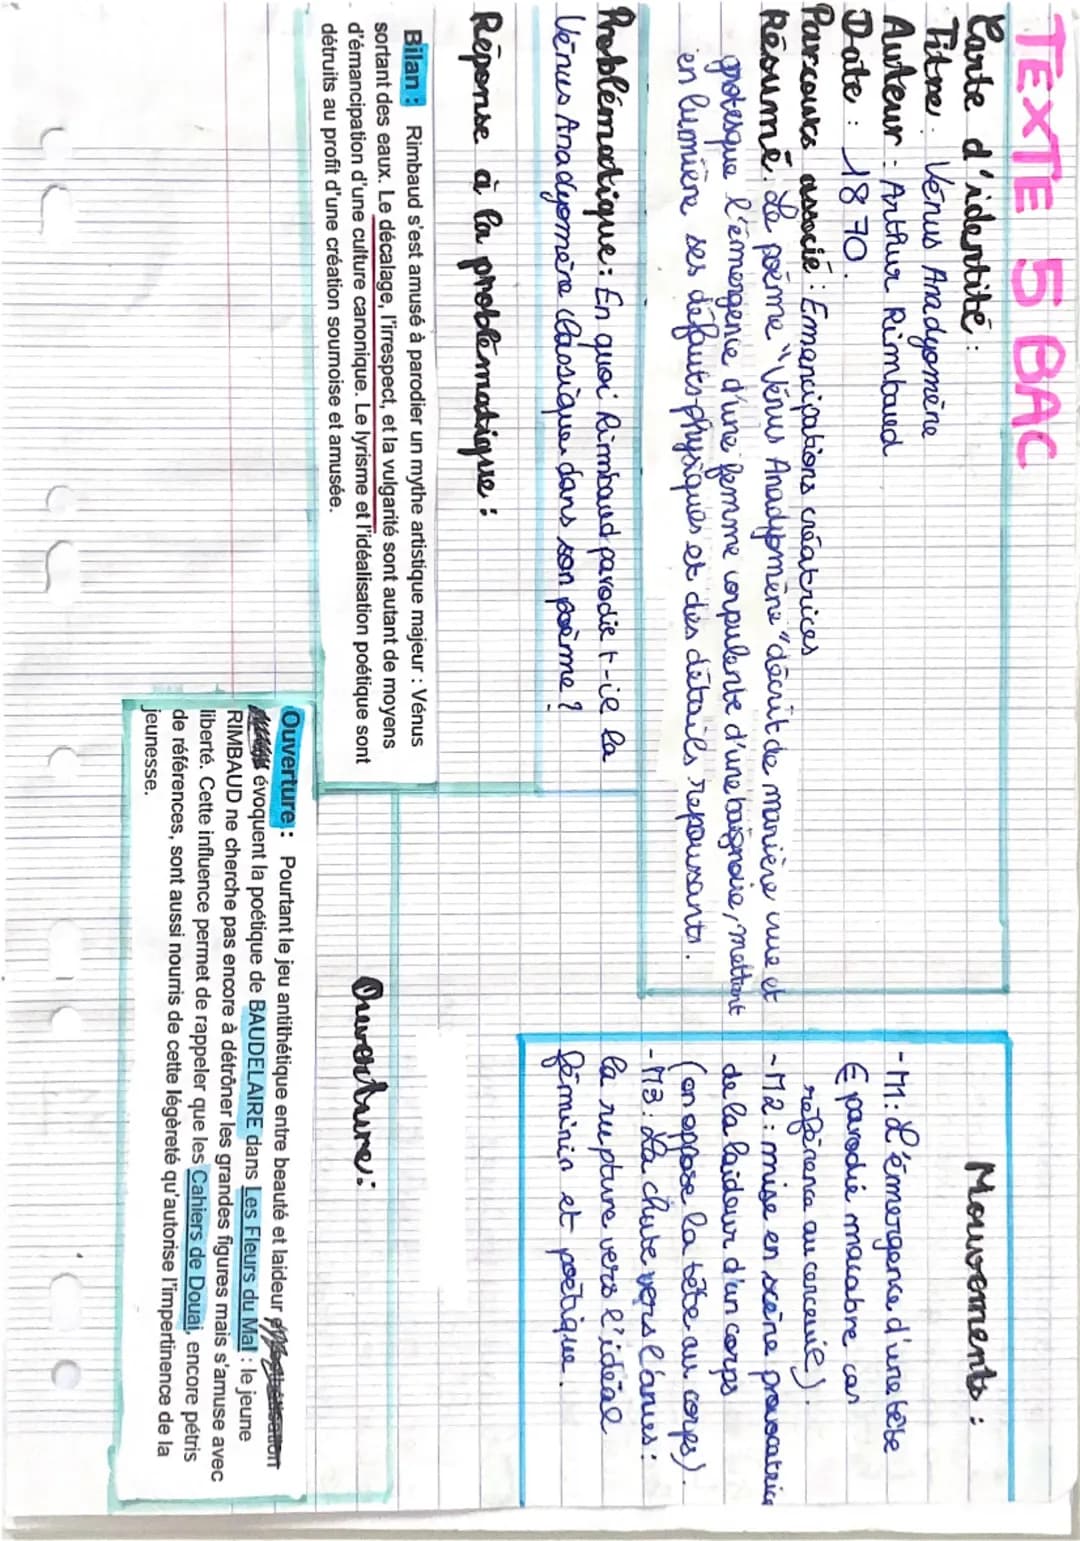 TEXTE 5 BAC
Carte d'identité :
Titre : Vénus Anadyomène
Auteur : Arthur Rimbaud
Date : 1870.
Parcours associé : Emancipations créatrices
Résumé : Le poème "Vénus Anadyomène" décrit de manière crue et
grotesque l'émergence d'une femme corpulente d'une baignoire, mettant
en lumière ses défauts physiques et des détails repoussants.
Problématique : En quoi Rimbaud parodie t-il la
Vénus Anadyomène classique dans son poème ?
Réponse à la problématique :
Bilan : Rimbaud s'est amusé à parodier un mythe artistique majeur : Vénus
sortant des eaux. Le décalage, l'irrespect, et la vulgarité sont autant de moyens
d'émancipation d'une culture canonique. Le lyrisme et l'idéalisation poétique sont
détruits au profit d'une création sournoise et amusée.
Mouvements :
- M1 : L'émergence d'une tête
∈ parodie macabre car
référence au cercueil).
- M2 : mise en scène provocatrice
de la laideur d'un corps
(on oppose la tête au corps).
- M3 : La chute vers l'anus :
la rupture vers l'idéal
féminin et poétique.
Ouverture :
Ouverture : Pourtant le jeu antithétique entre beauté et laideur
évoquent la poétique de BAUDELAIRE dans Les Fleurs du Mal : le jeune
RIMBAUD ne cherche pas encore à détrôner les grandes figures mais s'amuse avec
liberté. Cette influence permet de rappeler que les Cahiers de Douai, encore pétris
de références, sont aussi nourris de cette légèreté qu'autorise l'impertinence de la
jeunesse.